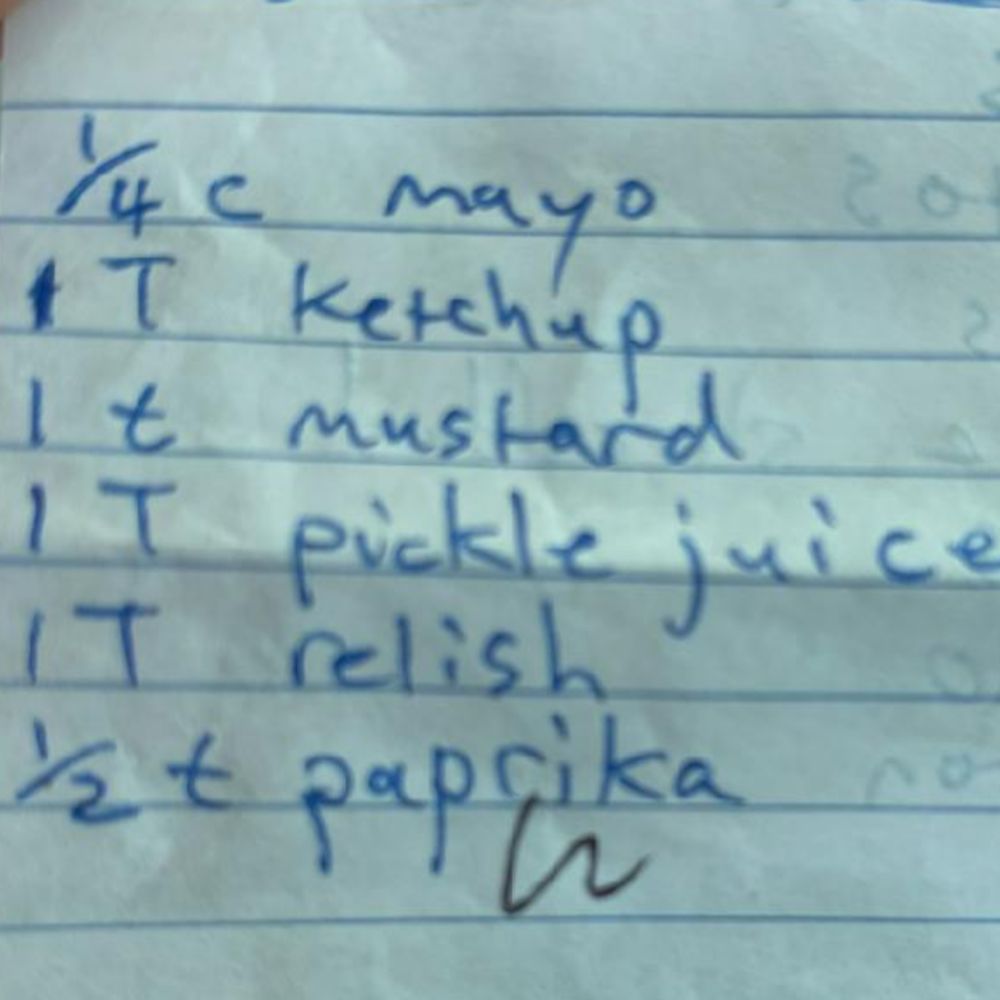 1/4 c mayo
1 T ketchup
1 t mustard
1 T pickle juice
1 T relish
1/2 t paprika